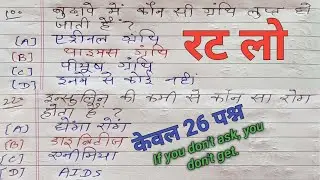 बुढ़ापे में कौन सी ग्रंथि लुप्त हो
जाती है ?
[A] एड्रीनल ग्रंथि
[B] थाइमस ग्रंथि
[C] पीयूष ग्रंथि
[D] इनमें से कोई नहीं
रट लो
इन्सुलिन की कमी से कौन सा रोग
होता है ?
[A] घेंघा रोग
[B] डाइबिटीज
[C] एनीमिया
[D] AIDS
केवल 26 प्रश्न
If you don't ask, you
don't get.